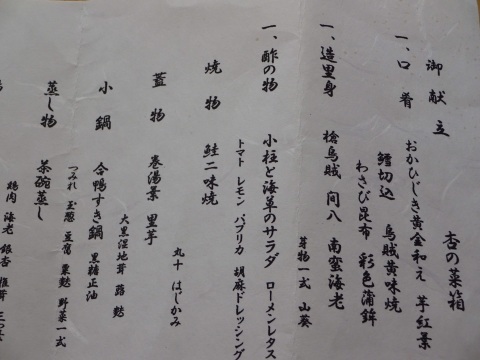 御献立
杏の菜箱
一、口肴 おかひじき黄金和え 芋紅景
鱈切込 烏賊黄味焼
わさび昆布 彩色蒲鉾
一、造里身 槍烏賊 間八 南蛮海老
芽物一式 山葵
一、酢の物 小柱と海草のサラダ ローメンレタス
トマト レモン パプリカ 胡麻ドレッシング
焼物 鮭二味焼
丸十 はじかみ
蓋物 巻湯景 里芋
大黒湿地茸 蕗 麩
小鍋 合鴨すき鍋 黒糖正油
つみれ 玉葱 豆富 粟麩 野菜一式
蒸し物 茶碗蒸し
鶏肉 海老 銀杏 椎茸